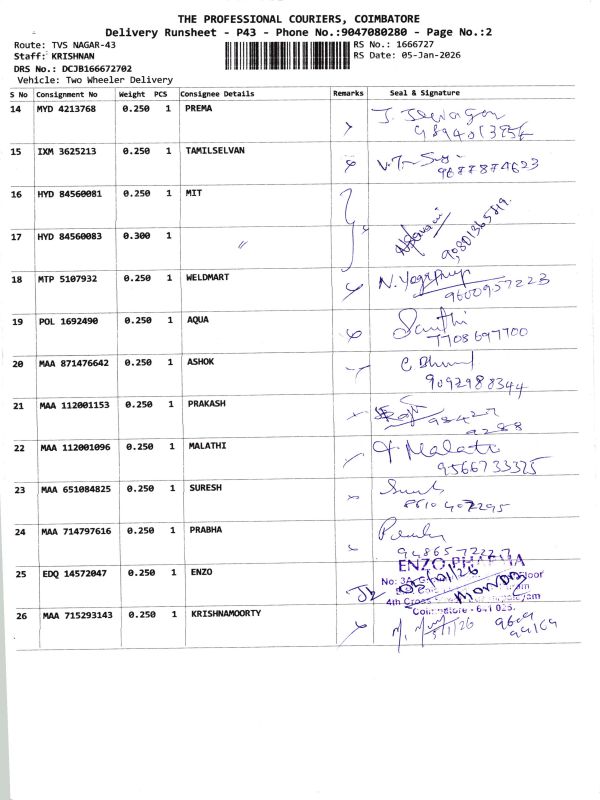 THE PROFESSIONAL COURIERS, COIMBATORE
Delivery Runsheet - P43 - Phone No.:9047080280 - Page No.:2
Route: TVS NAGAR-43 RS No.: 1666727
Staff: KRISHNAN RS Date: 05-Jan-2026
DRS No.: DCJB166672702
Vehicle: Two Wheeler Delivery
S No Consignment No Weight PCS Consignee Details Remarks Seal & Signature
14 MYD 4213768 0.250 1 PREMA
15 IXM 3625213 0.250 1 TAMILSELVAN
9677874623
16 HYD 84560081 0.250 1 MIT
17 HYD 84560083 0.300 1 〃
18 MTP 5107932 0.250 1 WELDMART
9600957223
19 POL 1692490 0.250 1 AQUA Santhi
7708697700
20 MAA 871476642 0.250 1 ASHOK
9092988344
21 MAA 112001153 0.250 1 PRAKASH
98427
9288
22 MAA 112001096 0.250 1 MALATHI Malati
9566733325
23 MAA 651084825 0.250 1 SURESH
8610402295
24 MAA 714797616 0.250 1 PRABHA
25 EDQ 14572047 0.250 1 ENZO
ENZO PHARMA
Floor
05/01/26
MONDAY
4th Cross
Coimbatore - 641 025.
26 MAA 715293143 0.250 1 KRISHNAMOORTY
5/1/26